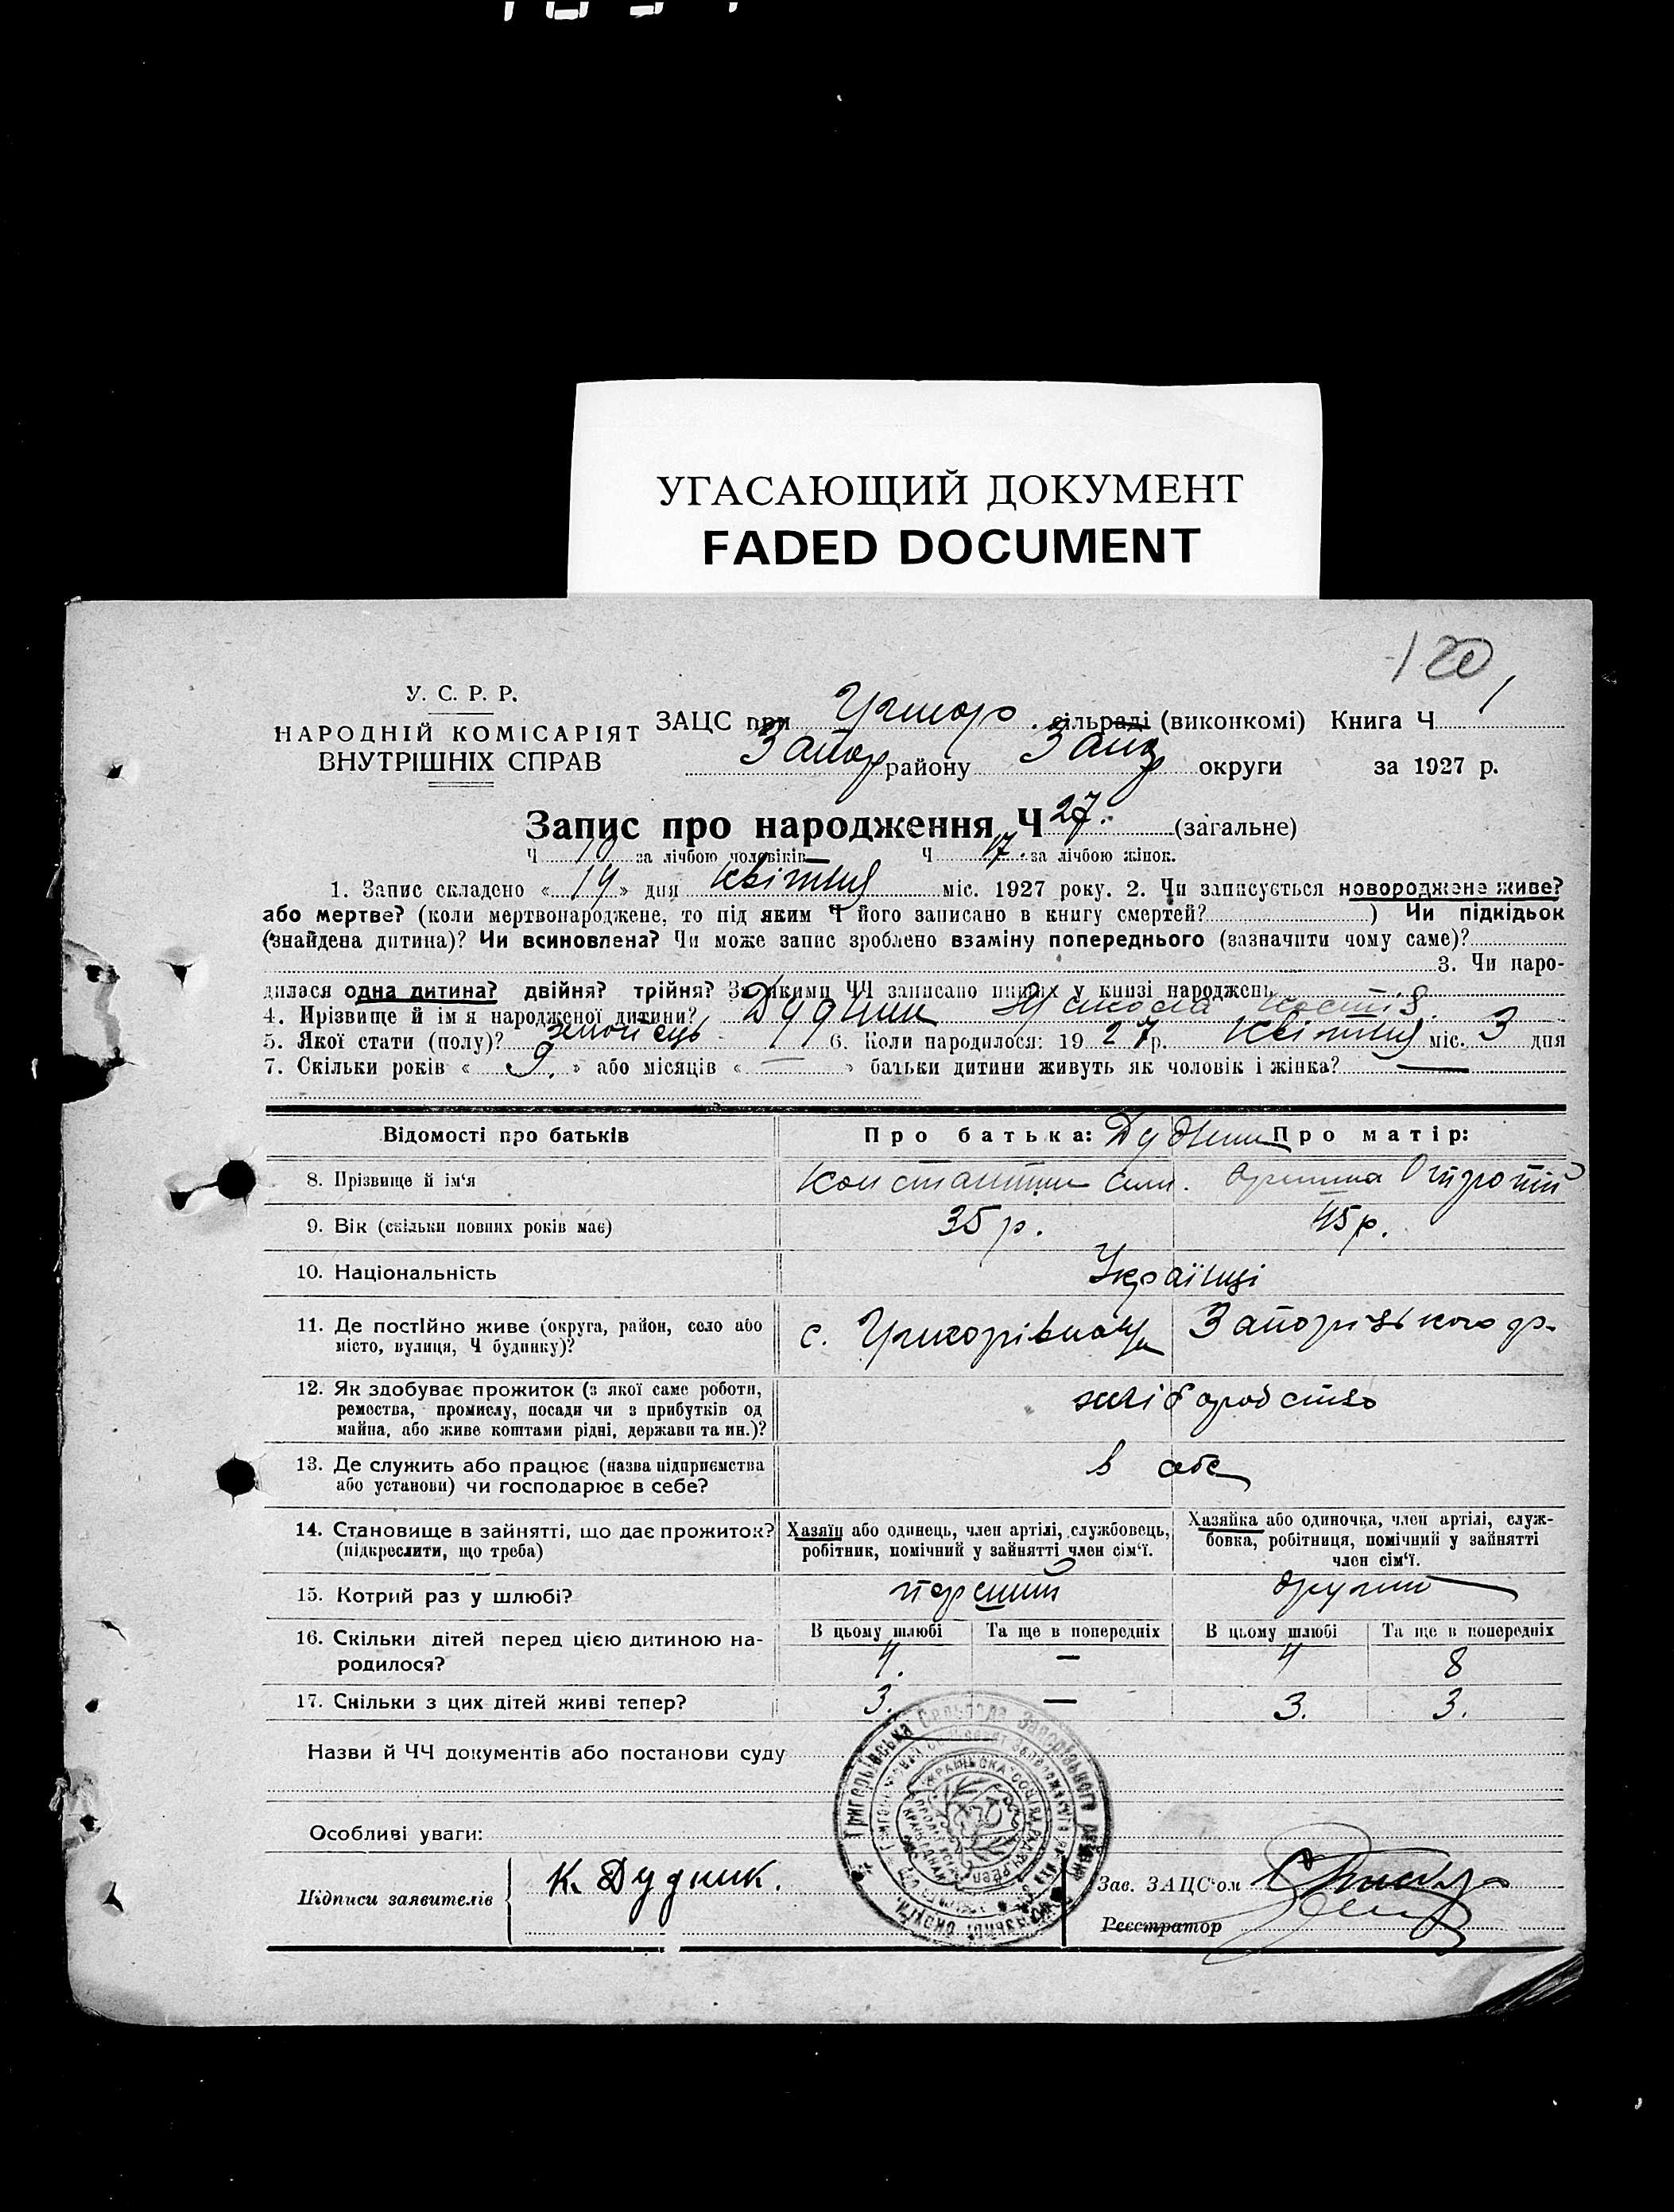 УГАСАЮЩИЙ ДОКУМЕНТ
FADED DOCUMENT
120
У. С. Р. Р.
НАРОДНІЙ КОМІСАРІЯТ
ВНУТРІШНІХ СПРАВ
ЗАЦС при сільраді (виконкомі) Книга Ч 1
Запор району Запор округи за 1927 р.
Запис про народження Ч 27. (загальне)
Ч 10 за лічбою чоловіків Ч 17. за лічбою жінок.
1. Запис складено « 14 » дня квітня міс. 1927 року. 2. Чи записується новороджене живе?
або мертве? (коли мертвонароджене, то під яким Ч його записано в книгу смертей? ) Чи підкідьок
(знайдена дитина)? Чи всиновлена? Чи може запис зроблено взаміну попереднього (зазначити чому саме)?
3. Чи наро-
дилася одна дитина? двійня? трійня? За якими ЧЧ записано инших у книзі народжень
4. Прізвище й ім'я народженої дитини? Дудник Микола Костів.
5. Якої стати (полу)? хлопець 6. Коли народилося: 1927 р. квітня міс. 3 дня
7. Скільки років « 9. » або місяців « — » батьки дитини живуть як чоловік і жінка? —
Відомості про батьків Про батька: Дудник Про матір:
8. Прізвище й ім'я Константин Сим.
9. Вік (скільки повних років має) 35 р. 45 р.
10. Національність Українці
11. Де постійно живе (округа, район, село або
місто, вулиця, Ч будинку)? с. Запорізького
12. Як здобуває прожиток (з якої саме роботи,
ремества, промислу, посади чи з прибутків од
майна, або живе коштами рідні, держави та ин.)? хліборобство
13. Де служить або працює (назва підприємства
або установи) чи господарює в себе? в себе
14. Становище в зайнятті, що дає прожиток?
(підкреслити, що треба)
Хазяїн або одинець, член артілі, службовець,
робітник, помічний у зайнятті член сім'ї.
Хазяйка або одиночка, член артілі, служ-
бовка, робітниця, помічний у зайнятті
член сім'ї.
15. Котрий раз у шлюбі? перший другий
16. Скільки дітей перед цією дитиною на-
родилося?
В цьому шлюбі Та ще в попередніх В цьому шлюбі Та ще в попередніх
4. — 4 8
17. Скільки з цих дітей живі тепер? 3. — 3. 3.
Назви й ЧЧ документів або постанови суду
Особливі уваги:
Підписи заявителів К. Дудник.
Зав. ЗАЦС'ом
Реєстратор